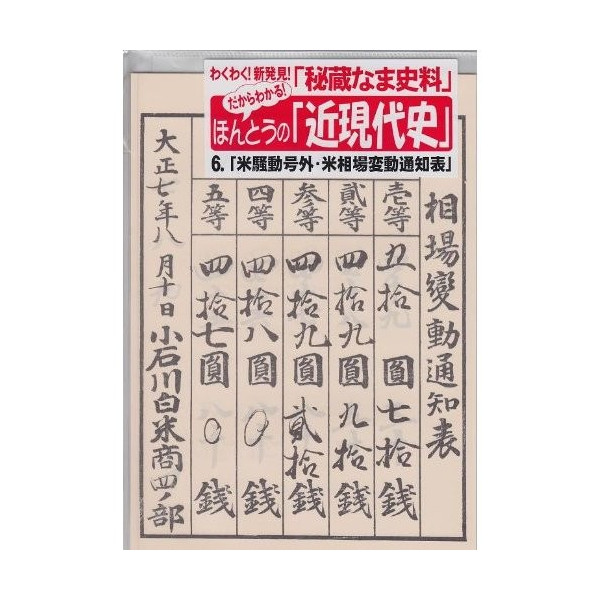 わくわく!新発見!「秘蔵なま史料」
だからわかる!
ほんとうの「近現代史」
6.「米騒動号外・米相場変動通知表」
相場變動通知表
壱等 五拾圓七拾銭
貳等 四拾九圓九拾銭
参等 四拾九圓貳拾銭
四等 四拾八圓0銭
五等 四拾七圓0銭
大正七年八月十日小石川白米商四ノ部